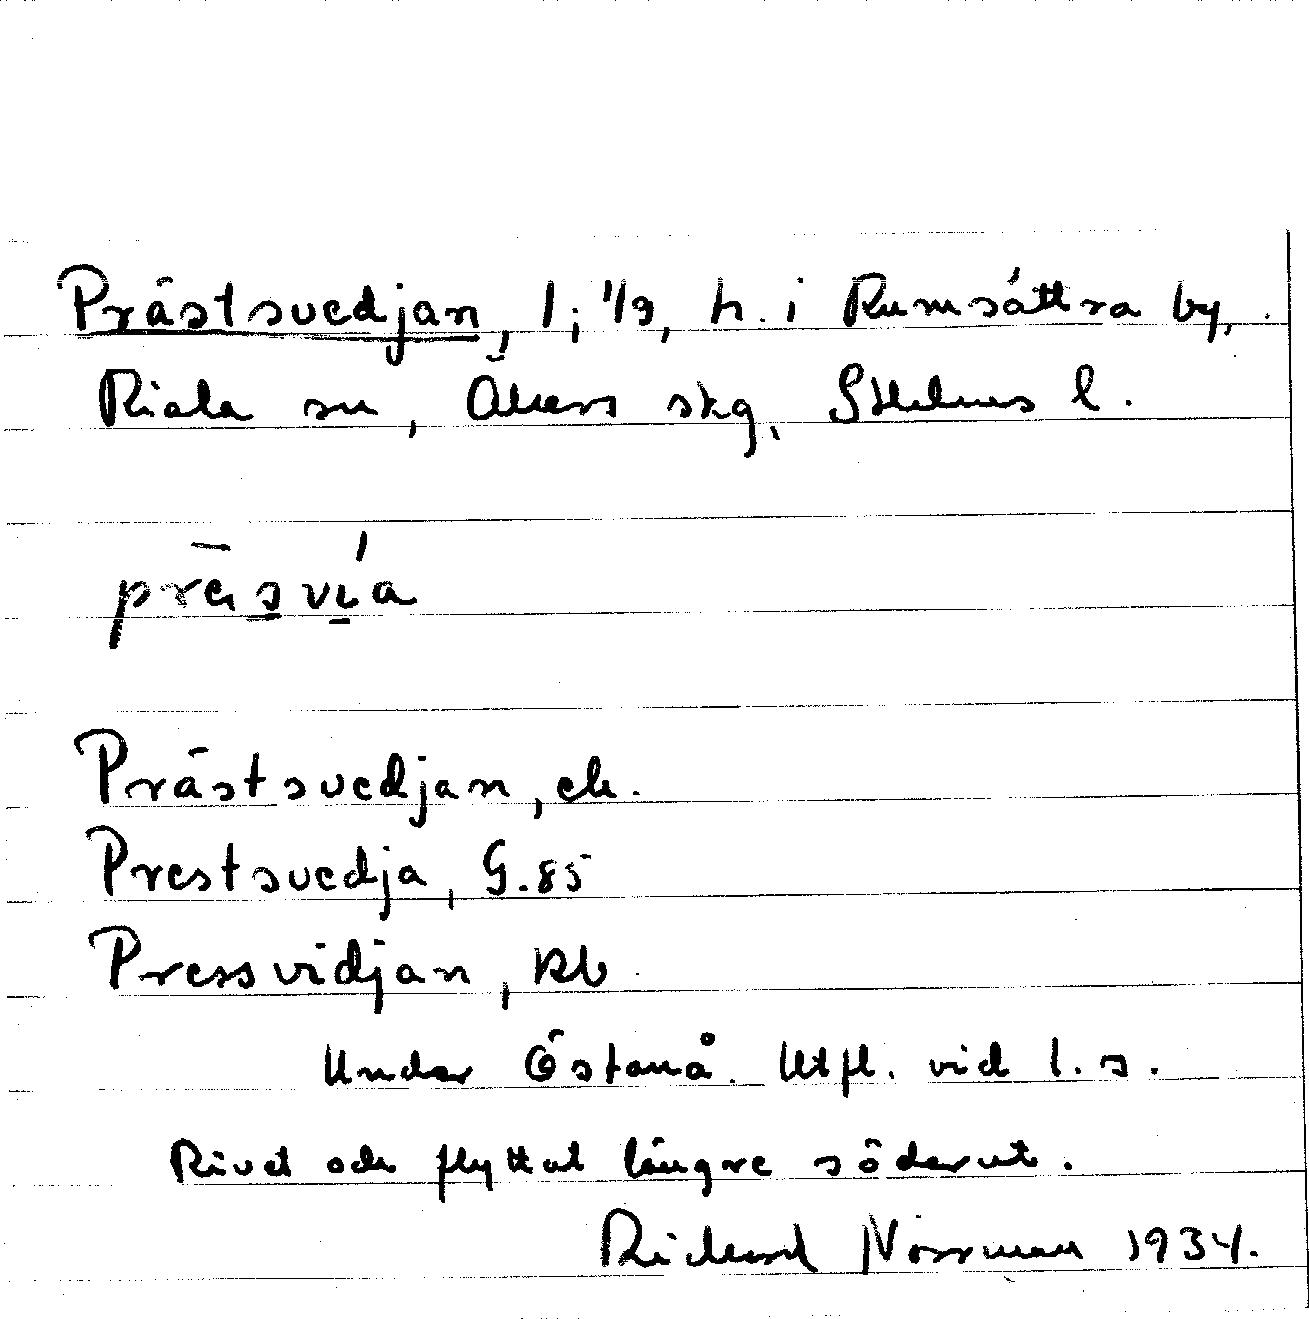 Prästsvedjan, l; 1/9, h. i Rumsättra by,
Riala sn, Åkers skg, Sthlms l.
präsvia
Prästsvedjan, ek.
Prestsvedja, G.85
Pressvidjan, Rb
Under Östanå. Utfl. vid l. s.
Rivet och flyttat längre söderut.
Richard Norrman 1934.